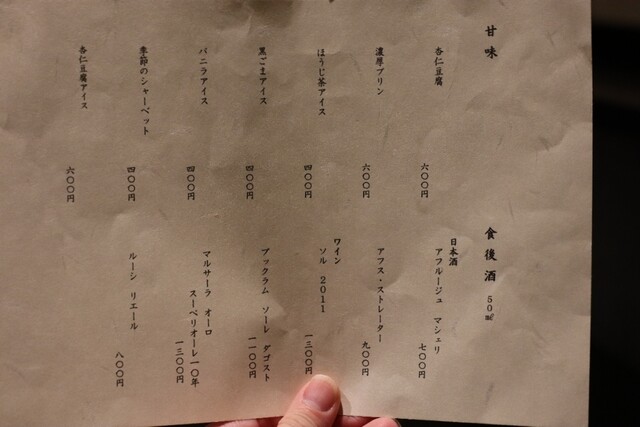 甘味
杏仁豆腐 六〇〇円
濃厚プリン 六〇〇円
ほうじ茶アイス 四〇〇円
黒ごまアイス 四〇〇円
バニラアイス 四〇〇円
季節のシャーベット 四〇〇円
杏仁豆腐アイス 六〇〇円
食後酒 50㎖
日本酒
アフルージュ マシェリ 七〇〇円
アフス・ストレーター 九〇〇円
ワイン
ソル 2011 一三〇〇円
ブックラム ソーレ ダゴスト 一一〇〇円
マルサーラ オーロ
スーペリオーレ一〇年 一三〇〇円
ルーシ リエール 八〇〇円